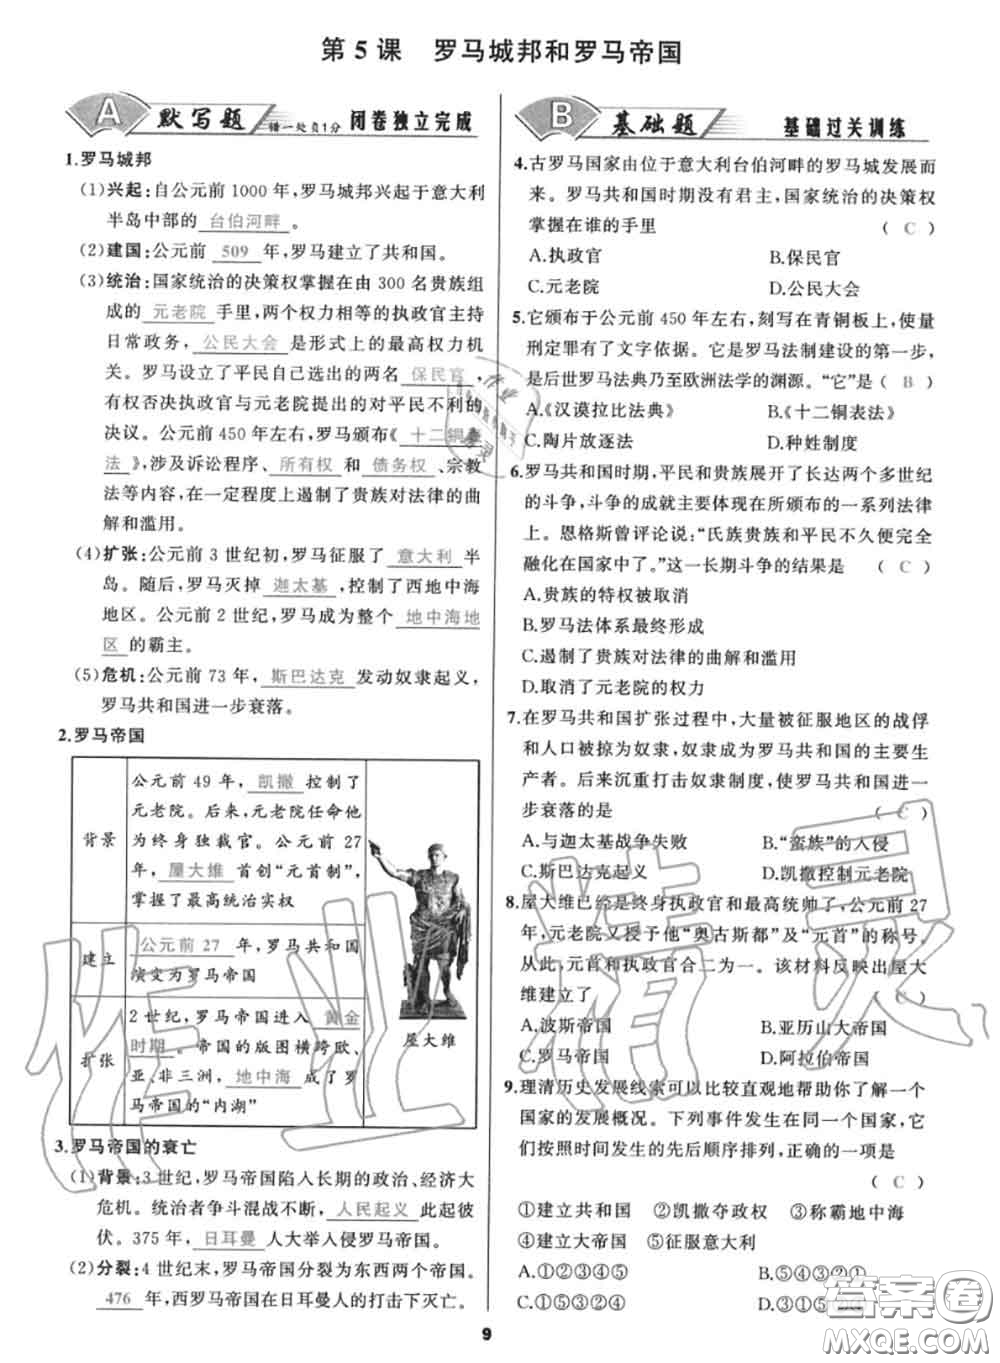 第 5 课 罗马城邦和罗马帝国
A 默写题 错一处负1分 闭卷独立完成
1.罗马城邦
(1)兴起:自公元前 1000 年,罗马城邦兴起于意大利
半岛中部的 台伯河畔 。
(2)建国:公元前 509 年,罗马建立了共和国。
(3)统治:国家统治的决策权掌握在由 300 名贵族组
成的 元老院 手里,两个权力相等的执政官主持
日常政务, 公民大会 是形式上的最高权力机
关。罗马设立了平民自己选出的两名 保民官 ,
有权否决执政官与元老院提出的对平民不利的
决议。公元前 450 年左右,罗马颁布《 十二铜表
法 》,涉及诉讼程序、 所有权 和 债务权 、宗教
法等内容,在一定程度上遏制了贵族对法律的曲
解和滥用。
(4)扩张:公元前 3 世纪初,罗马征服了 意大利 半
岛。随后,罗马灭掉 迦太基 ,控制了西地中海
地区。公元前 2 世纪,罗马成为整个 地中海地
区 的霸主。
(5)危机:公元前 73 年, 斯巴达克 发动奴隶起义,
罗马共和国进一步衰落。
2.罗马帝国
背景
公元前 49 年, 凯撒 控制了
元老院。后来,元老院任命他
为终身独裁官。公元前 27
年, 屋大维 首创“元首制”,
掌握了最高统治实权
建立
公元前 27 年,罗马共和国
演变为罗马帝国
扩张
2 世纪,罗马帝国进入 黄金
时期 。帝国的版图横跨欧、
亚、非三洲, 地中海 成了罗
马帝国的“内湖”
屋大维
3.罗马帝国的衰亡
(1)背景:3 世纪,罗马帝国陷入长期的政治、经济大
危机。统治者争斗混战不断, 人民起义 此起彼
伏。375 年, 日耳曼 人大举入侵罗马帝国。
(2)分裂:4 世纪末,罗马帝国分裂为东西两个帝国。
476 年,西罗马帝国在日耳曼人的打击下灭亡。
B 基础题 基础过关训练
4.古罗马国家由位于意大利台伯河畔的罗马城发展而
来。罗马共和国时期没有君主,国家统治的决策权
掌握在谁的手里 ( C )
A.执政官 B.保民官
C.元老院 D.公民大会
5.它颁布于公元前 450 年左右,刻写在青铜板上,使量
刑定罪有了文字依据。它是罗马法制建设的第一步,
是后世罗马法典乃至欧洲法学的渊源。“它”是 ( B )
A.《汉谟拉比法典》 B.《十二铜表法》
C.陶片放逐法 D.种姓制度
6.罗马共和国时期,平民和贵族展开了长达两个多世纪
的斗争,斗争的成就主要体现在所颁布的一系列法律
上。恩格斯曾评论说:“氏族贵族和平民不久便完全
融化在国家中了。”这一长期斗争的结果是 ( C )
A.贵族的特权被取消
B.罗马法体系最终形成
C.遏制了贵族对法律的曲解和滥用
D.取消了元老院的权力
7.在罗马共和国扩张过程中,大量被征服地区的战俘
和人口被掠为奴隶,奴隶成为罗马共和国的主要生
产者。后来沉重打击奴隶制度,使罗马共和国进一
步衰落的是 ( C )
A.与迦太基战争失败 B.“蛮族”的入侵
C.斯巴达克起义 D.凯撒控制元老院
8.屋大维已经是终身执政官和最高统帅了,公元前 27
年,元老院又授予他“奥古斯都”及“元首”的称号。
从此,元首和执政官合二为一。该材料反映出屋大
维建立了 ( C )
A.波斯帝国 B.亚历山大帝国
C.罗马帝国 D.阿拉伯帝国
9.理清历史发展线索可以比较直观地帮助你了解一个
国家的发展概况。下列事件发生在同一个国家,它
们按照时间发生的先后顺序排列,正确的一项是
( C )
①建立共和国 ②凯撒夺政权 ③称霸地中海
④建立大帝国 ⑤征服意大利
A.①②③④⑤ B.⑤④③②①
C.①⑤③②④ D.⑤③①②④
9
作业精灵
作业精灵
答案圈
MXQE.COM